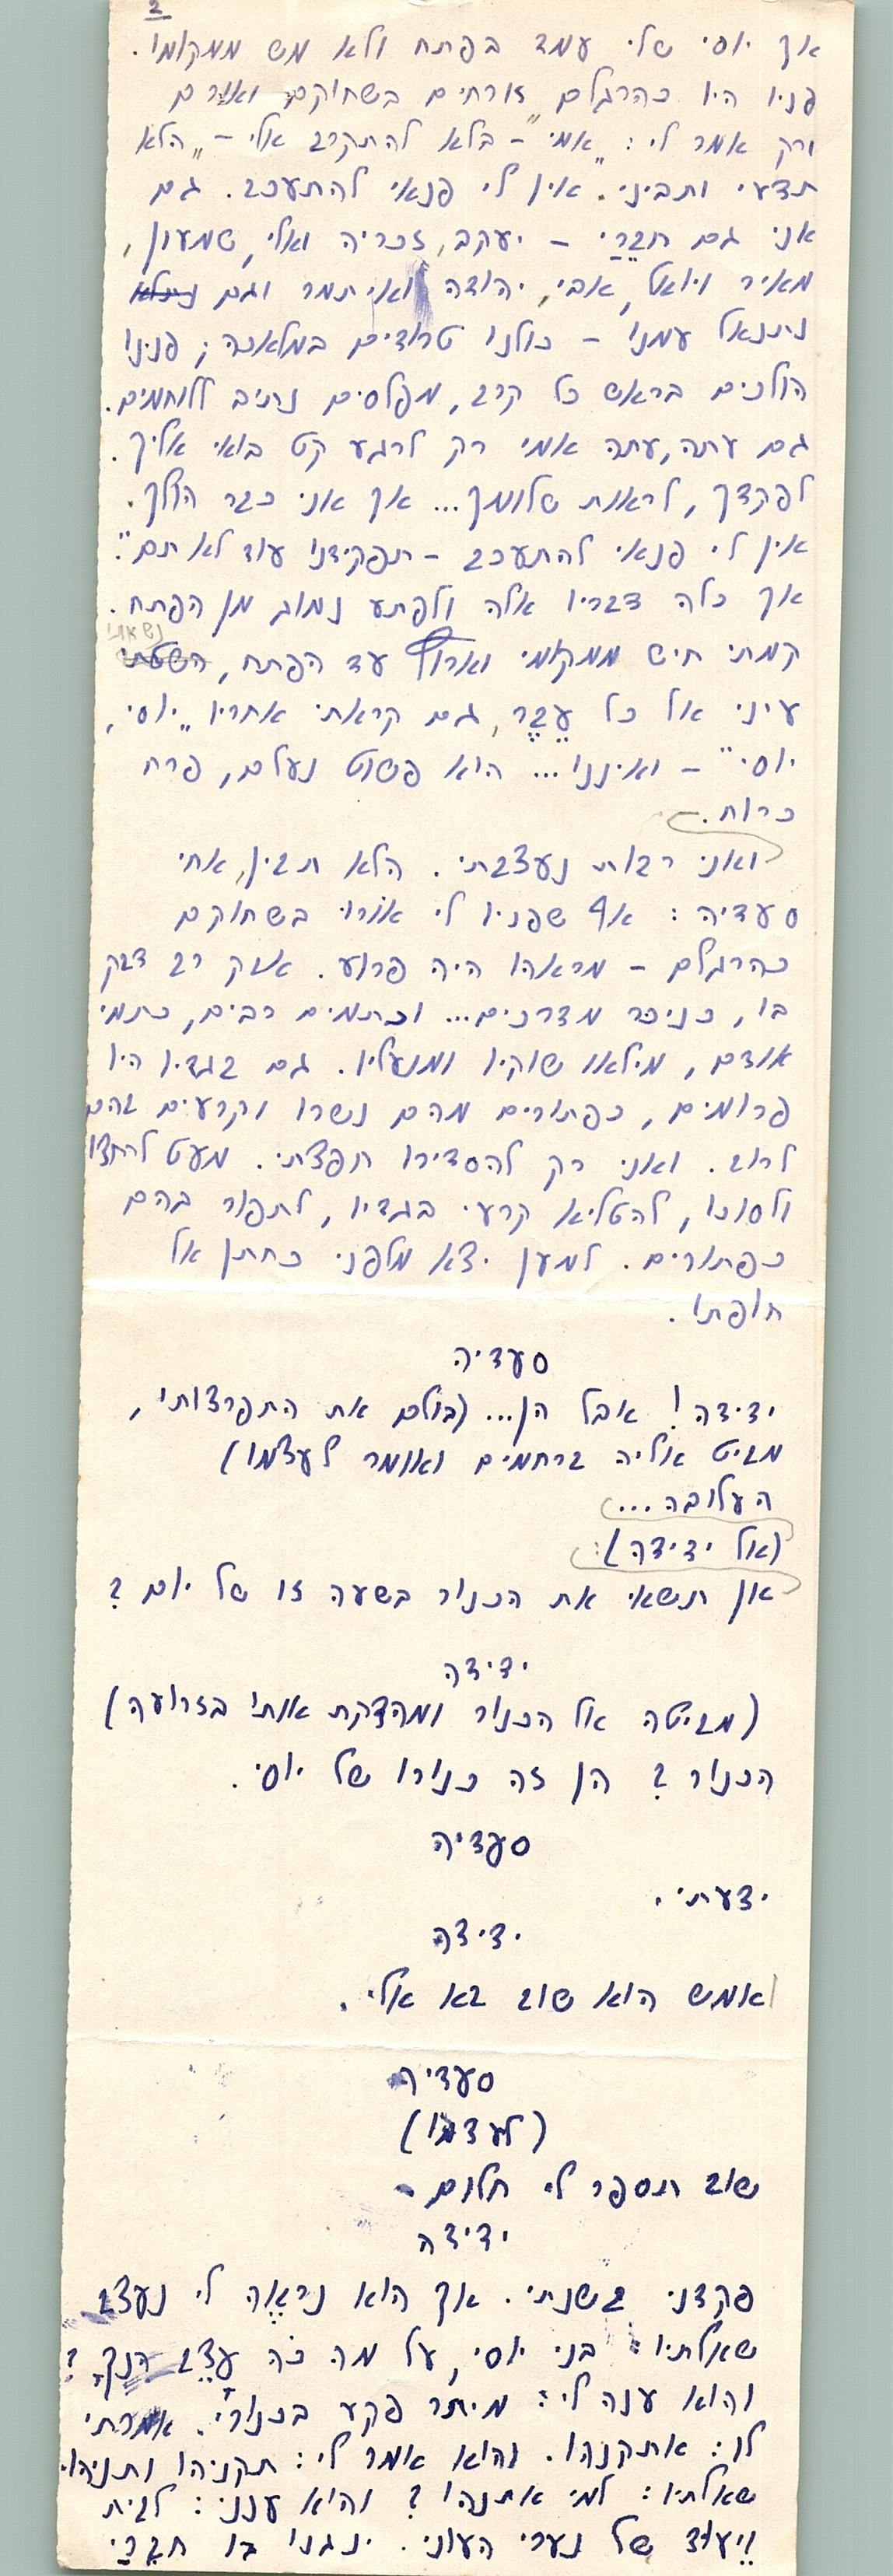 2
אך יוסי שלי עמד בפתח ולא מש ממקומו.
פניו היו כהרגלם זורחים בשחוקם ואורם
ורק אמר לי: "אמי" – בלא להתקרב אלי – "הלא
תדעי ותביני. אין לי פנאי להתעכב. גם
אני גם חבֵרַי – יעקב, זכריה ואלי, שמעון,
מאיר ויואל, אבי, יהודה ואיתמר וגם
נתנאל עמנו – כולנו טרודים במלאכה; פנינו
הולכים בראש כל קרב, מפלסים נתיב ללוחמים.
גם עתה, עתה אמי רק לרגע קט בואי אליך.
לפקדך, לראות שלומך... אך אני כבר הולך.
אין לי פנאי להתעכב – תפקידנו עוד לא תם".
אך כלה דבריו אלה ולפתע נמוג מן הפתח.
נשאתי
קמתי חיש ממקומי וארוץ עד הפתח, השטתי
עיני אל כל עֵבֶר, גם קראתי אחריו "יוסי,
יוסי" – ואיננו... הוא פשוט נעלם, פרח
כרוח.
ואני רבות נעצבתי. הלא תבין, אחי
סעדיה: אף שפניו לי אורו בשחוקם
כהרגלם – מראהו היה פרוע. אבק רב דבק
בו, כניכר מדרכים... וכתמים רבים, כתמי
אודם, מילאו שוקיו ומנעליו. גם בגדיו היו
פרומים, כפתורים מהם נשרו וקרעים בהם
לרוב. ואני רק להסדירו חפצתי. מעט לרחצו
ולסוכו, להטליא קרעי בגדיו, לתפור בהם
כפתורים. למען יצא מלפני כחתן אל
חופתו.
סעדיה
ידידה! אבל הן... (בולם את התפרצותו,
מביט אליה ברחמים ואומר לעצמו)
העלובה...
(אל ידידה):
אן תשאי את הכנור בשעה זו של יום?
ידידה
(מביטה אל הכנור ומהדקת אותו בזרועה)
הכנור? הן זה כנורו של יוסי.
סעדיה
ידעתי.
ידידה
אמש הוא שוב בא אלי.
סעדיה
(לעצמו)
שוב תספר לי חלום –
ידידה
פקדני בשנתי. אך הוא נִראֶה לי נעצב
שאלתיו: בני יוסי, על מה כֹּה עָצֵב הִנךָ?
והוא ענה לי: מיתר פקע בכנורי. אמרתי
לו: אתקנהו. והוא אומר לי: תקניהו ותניהו.
שאלתיו: למי אתנהו? והוא ענני: לבית
וִיעוּד של נערי העוני. ינגנו בו חבֵרַי